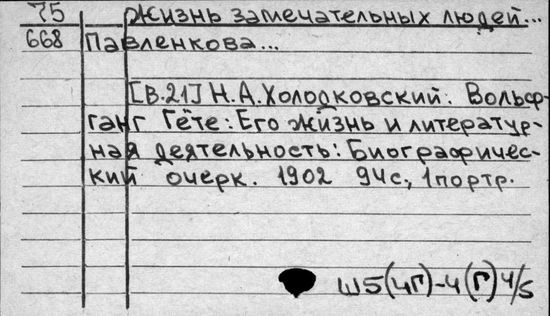 75 Жизнь замечательных людей...
668 Павленкова...
[В.21] Н.А.Холодковский: Вольф-
ганг Гёте: Его жизнь и литератур-
ная деятельность: Биографичес-
кий очерк. 1902 94с., 1портр.
Ш5(4Г)-4(Г)4/5